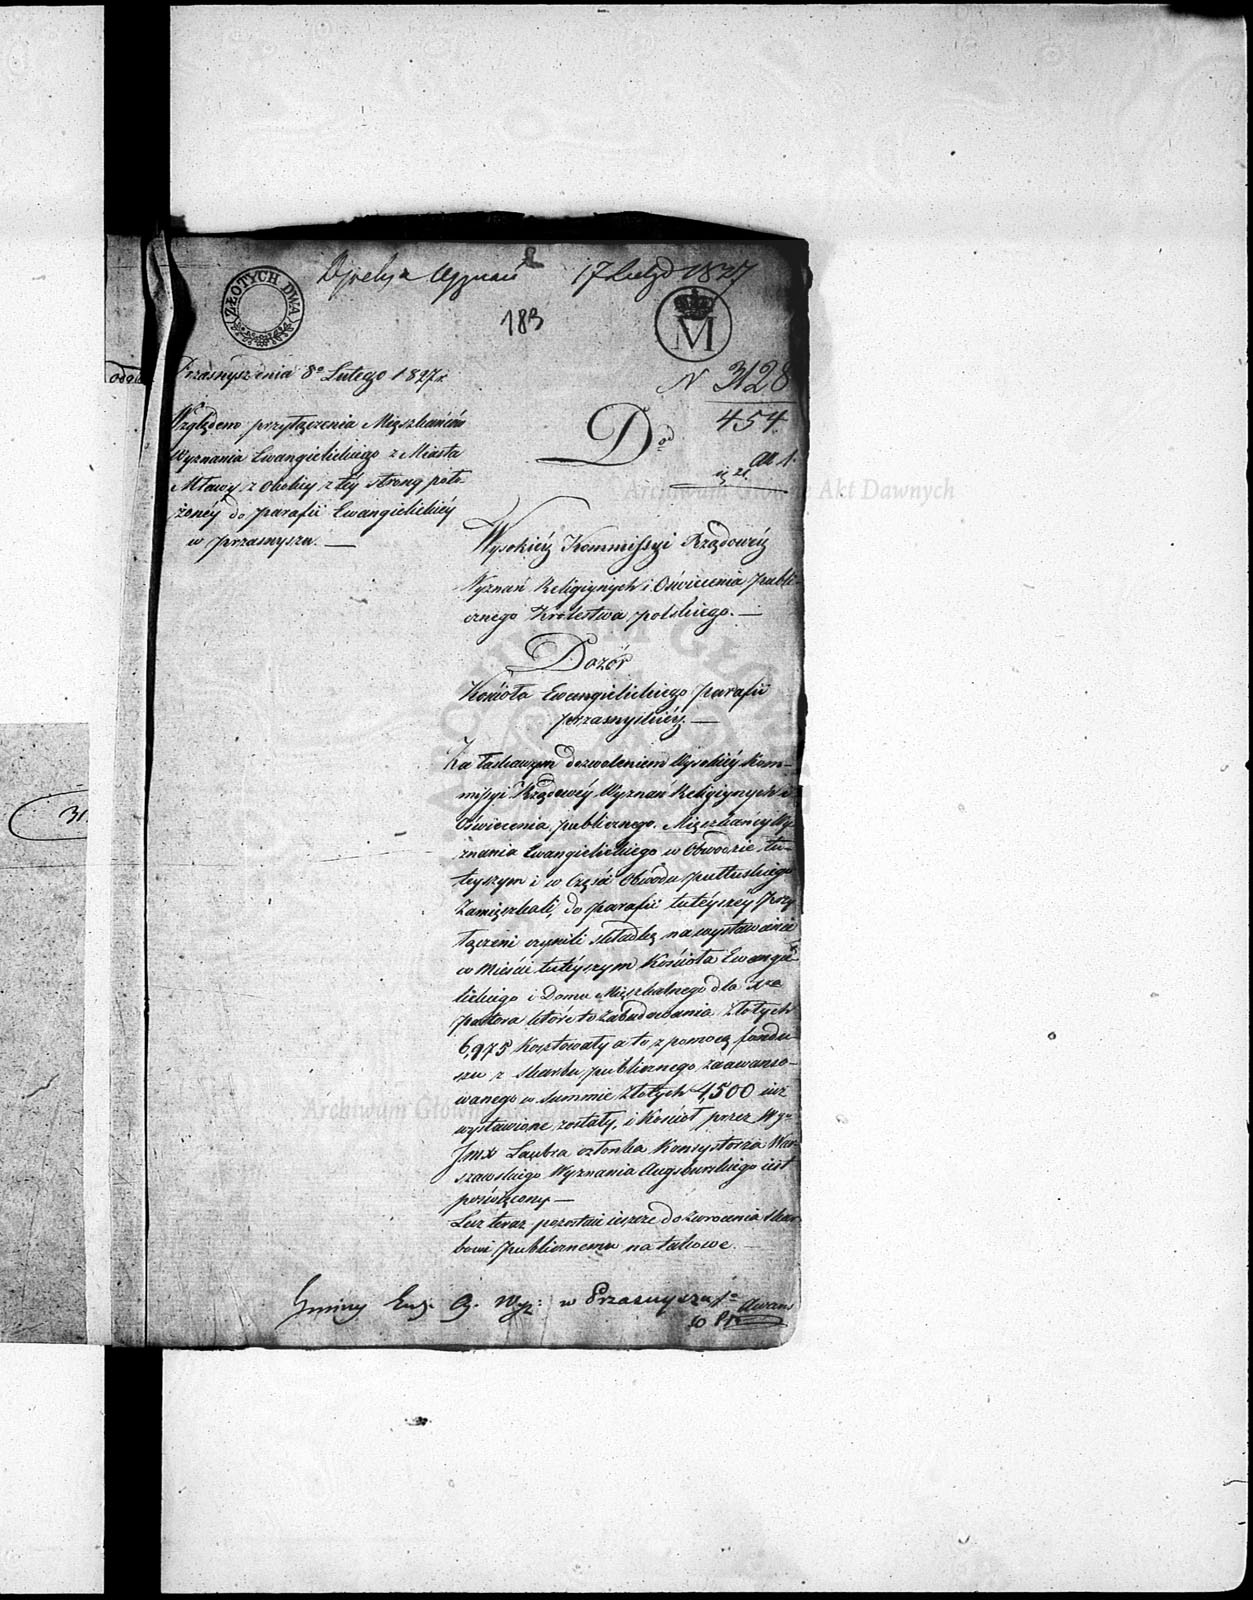 17 Lutgo 1827
ZŁOTYCH DWA
183
M
Przasnysz dnia 8º Lutego 1827 r.
N 3128
454
Względem przyłączenia Mięszkańców
Wyznania Ewangielickiego z Miasta
Mławy z okolicy z téy strony poło-
żonéy do parafii Ewangielickiéy
w Przasnyszu. —
Do
Wysokiéy Kommissyi Rządowéy
Wyznań Religiynych i Oświecenia publi-
cznego Królestwa polskiego. —
Dozór
Kościoła Ewangielickiego parafii
przasnyskiéy. —
Za łaskawym dozwoleniem Wysokiéy Kom-
missyi Rządowéy Wyznań Religiynych i
Oświecenia publicznego. Mięszkancy Wy-
znania Ewangielickiego w Obwodzie tu-
teyszym i w Części Obwodu pułtuskiego
Zamięszkali, do parafii tutéyszey Przy-
łączeni czynili składkę na wystawienie
w mieście tutéyszym Kościoła Ewangie-
lickiego i Domu Mięszkalnego dla Xdza
Pastora które to Zabudowania Złotych
6,975 Kosztowały a to z pomocą fundu-
szu z skarbu publicznego zaawanso-
wanego w summie Złotych 4,500 już
wystawione zostały, i Kościoł przez Wgo
Jmx Laubra członka Konsystorza War-
szawskiego Wyznania Augsburskiego iest
poświęcony —
Lecz teraz pozostaie ieszcze do zwrocenia skar-
bowi publicznemu na takowe. —
Gminy Ew. w Przasnyszu
31
Archiwum Główne Akt Dawnych
Archiwum Główne Akt Dawnych